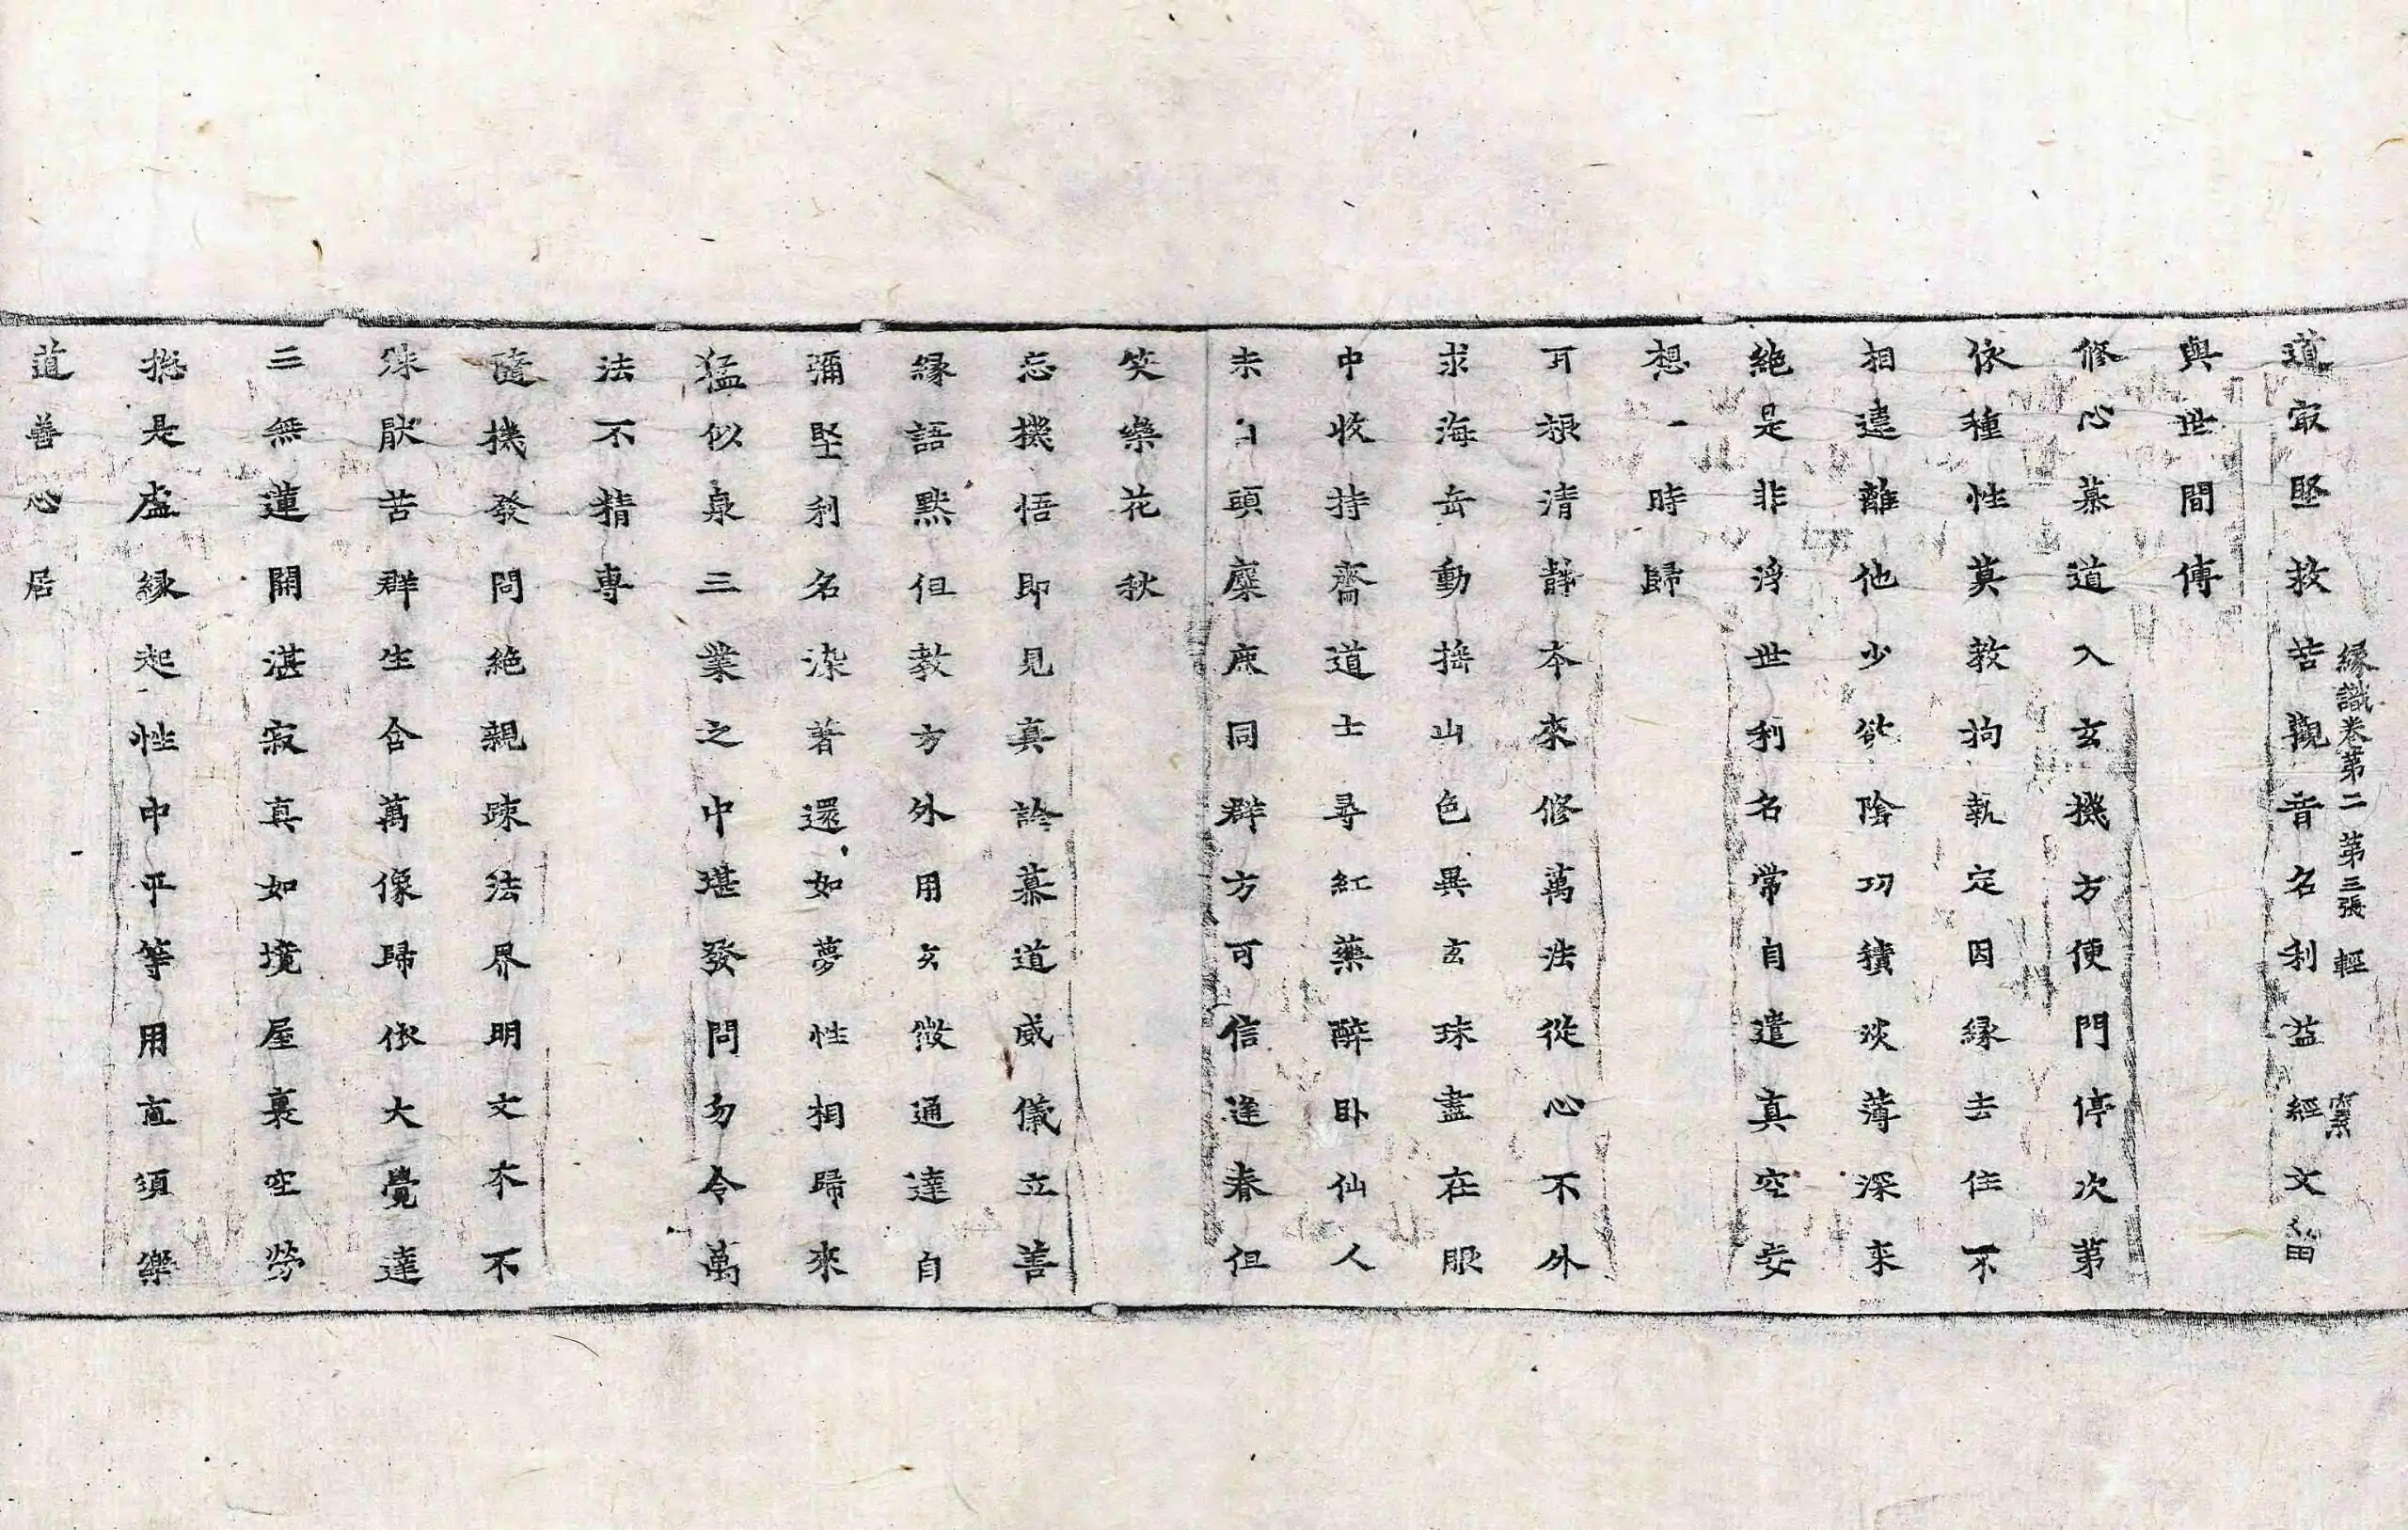 道㝡堅救苦觀音名利益經文留
緣識卷第二 第三張 輕
與世間傳
修心慕道入玄機方便門停次第
依種性莫教拘執定因緣去住不
相違離他少欲陰功積淡薄深來
絕是非浮世利名常自遣真空妄
想一時歸
可襪清靜本來修萬法從心不外
求海岳動搖山色異玄珠盡在眼
中收持齋道士尋紅藥醉臥仙人
未 頭麋鹿同群方可信逢春但
笑樂花秋
忘機悟即見真詮慕道威儀立善
緣語默但教方外用玄微通達自
彌堅利名染著還如夢性相歸來
猛似泉三業之中堪發問勿令萬
法不精專
隨機發問絕親疎法界明文本不
殊厭苦群生含萬像歸依大覺達
三無蓮開湛寂真如境屋裏空勞
捴是虛緣起性中平等用直須樂
道善心居